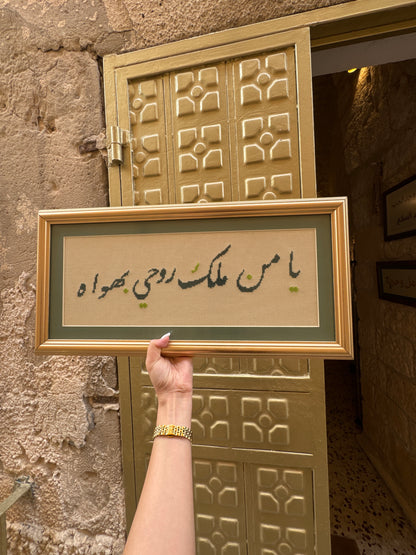 يا من ملك روحي بهواه